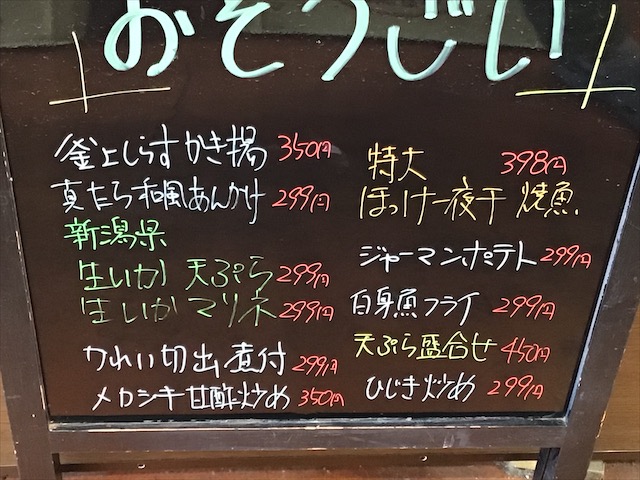 おそうじい
釜上しらすかき揚 350円
真たら和風あんかけ 299円
新潟県
生いか 天ぷら 299円
生いか マリネ 299円
かれい切出し煮付 299円
メカジキ甘酢炒め 350円
特大 398円
ほっけ一夜干 焼魚
ジャーマンポテト 299円
白身魚フライ 299円
天ぷら盛合せ 450円
ひじき炒め 299円